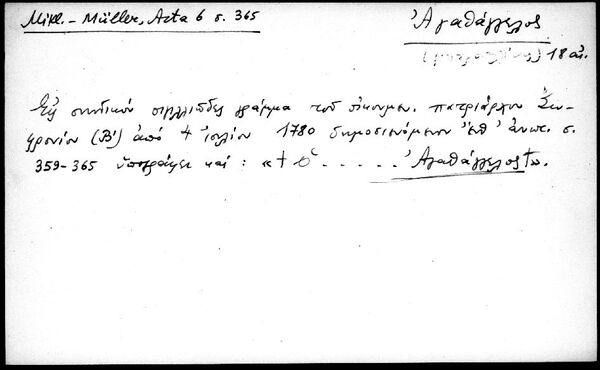 Mikl. - Müller, Acta 6 σ. 365
Ἀγαθάγγελος
18 αἰ.
Εἰς συνοδικὸν σιγιλλιῶδες γράμμα τοῦ οἰκουμεν. πατριάρχου Σω-
φρονίου (Β') ἀπὸ 4 ἰουλίου 1780 δημοσιευόμενον ἐνθ' ἀνωτ. σ.
359-365 ὑπογράφει καί : « † ὁ . . . . . Ἀγαθάγγελος †».